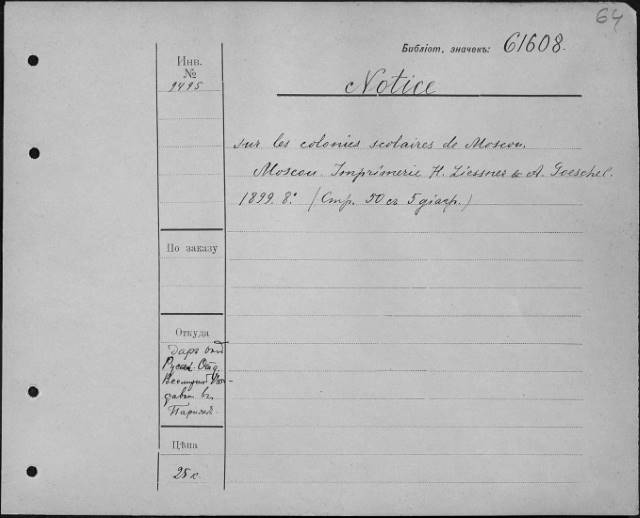 64
Библіот. значекъ: 61608.
Инв.
№
9495
Notice
sur les colonies scolaires de Moscou.
Moscou. Imprimerie H. Liessner & A. Goeschel.
1899. 8.° (Стр. 50 съ 5 діагр.)
По заказу
Откуда
Даръ отъ
Русск. Отд.
Всемирной
въ
Парижѣ.
Цѣна
25 к.